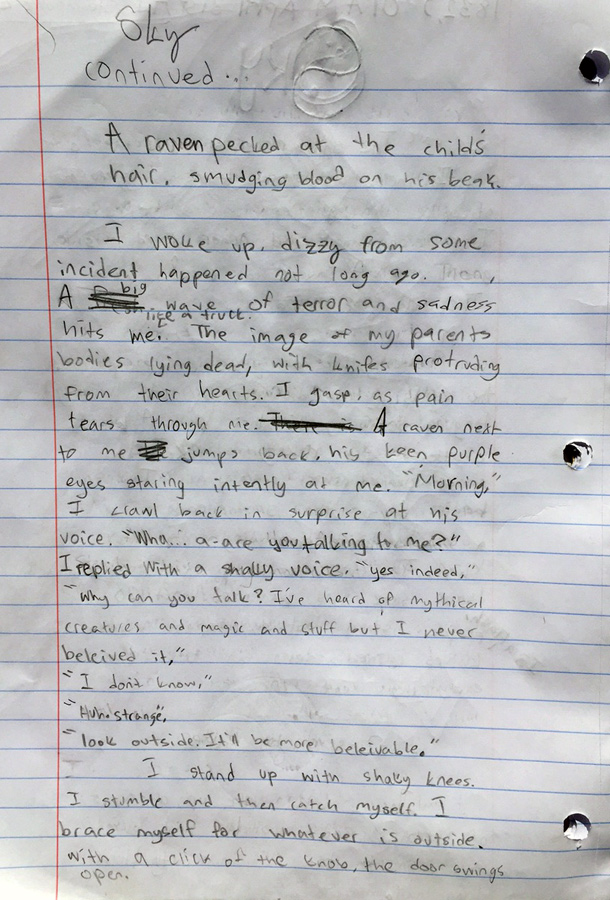 Sky
continued...
A raven pecked at the child's
hair, smudging blood on his beak.
I woke up, dizzy from some
incident happened not long ago. Then,
A big wave of terror and sadness
like a truck.
hits me. The image of my parents
bodies lying dead, with knifes protruding
from their hearts. I gasp, as pain
tears through me. There is A raven next
to me jumps back, his keen purple
eyes staring intently at me. "Morning,"
I crawl back in surprise at his
voice. "Wha... a-are you talking to me?"
I replied with a shaky voice. "yes indeed,"
"Why can you talk? I've heard of mythical
creatures and magic and stuff but I never
beleived it,"
"I don't know,"
"Huh. strange",
"look outside. It'll be more beleivable."
I stand up with shaky knees.
I stumble and then catch myself. I
brace myself for whatever is outside.
With a click of the knob, the door swings
open.